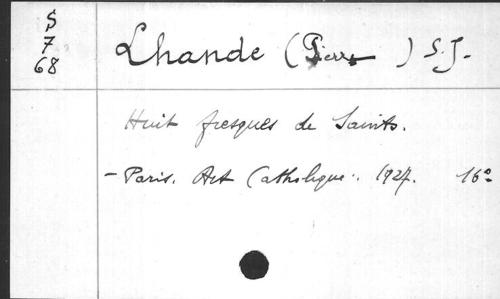 S
7
68
Lhande (Pierre) S.J.
Huit fresques de Saints.
- Paris. Art Catholique. 1927. 16°